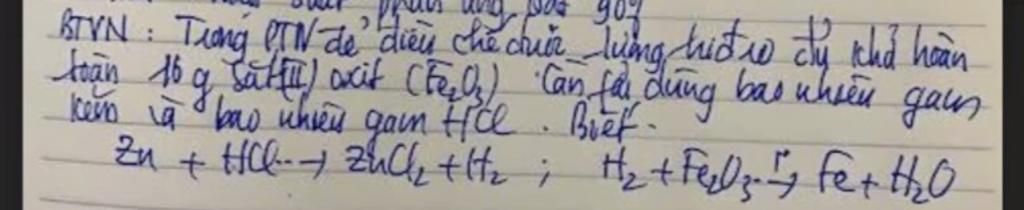 suất phản ứng
BTVN : Trong PTN để điều chế được lượng hiđro đủ khử hoàn
toàn 16 g Sắt(III) oxit (Fe₂O₃) Cần fải dùng bao nhiêu gam
kẽm và bao nhiêu gam HCl . Biết.
Zn + HCl → ZnCl₂ + H₂ ; H₂ + Fe₂O₃ → Fe + H₂O